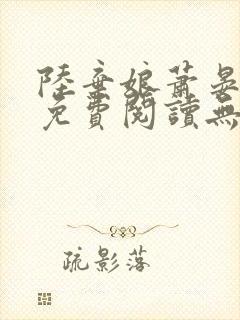 陸棄娘蕭晏
免費閱讀無
疏影落